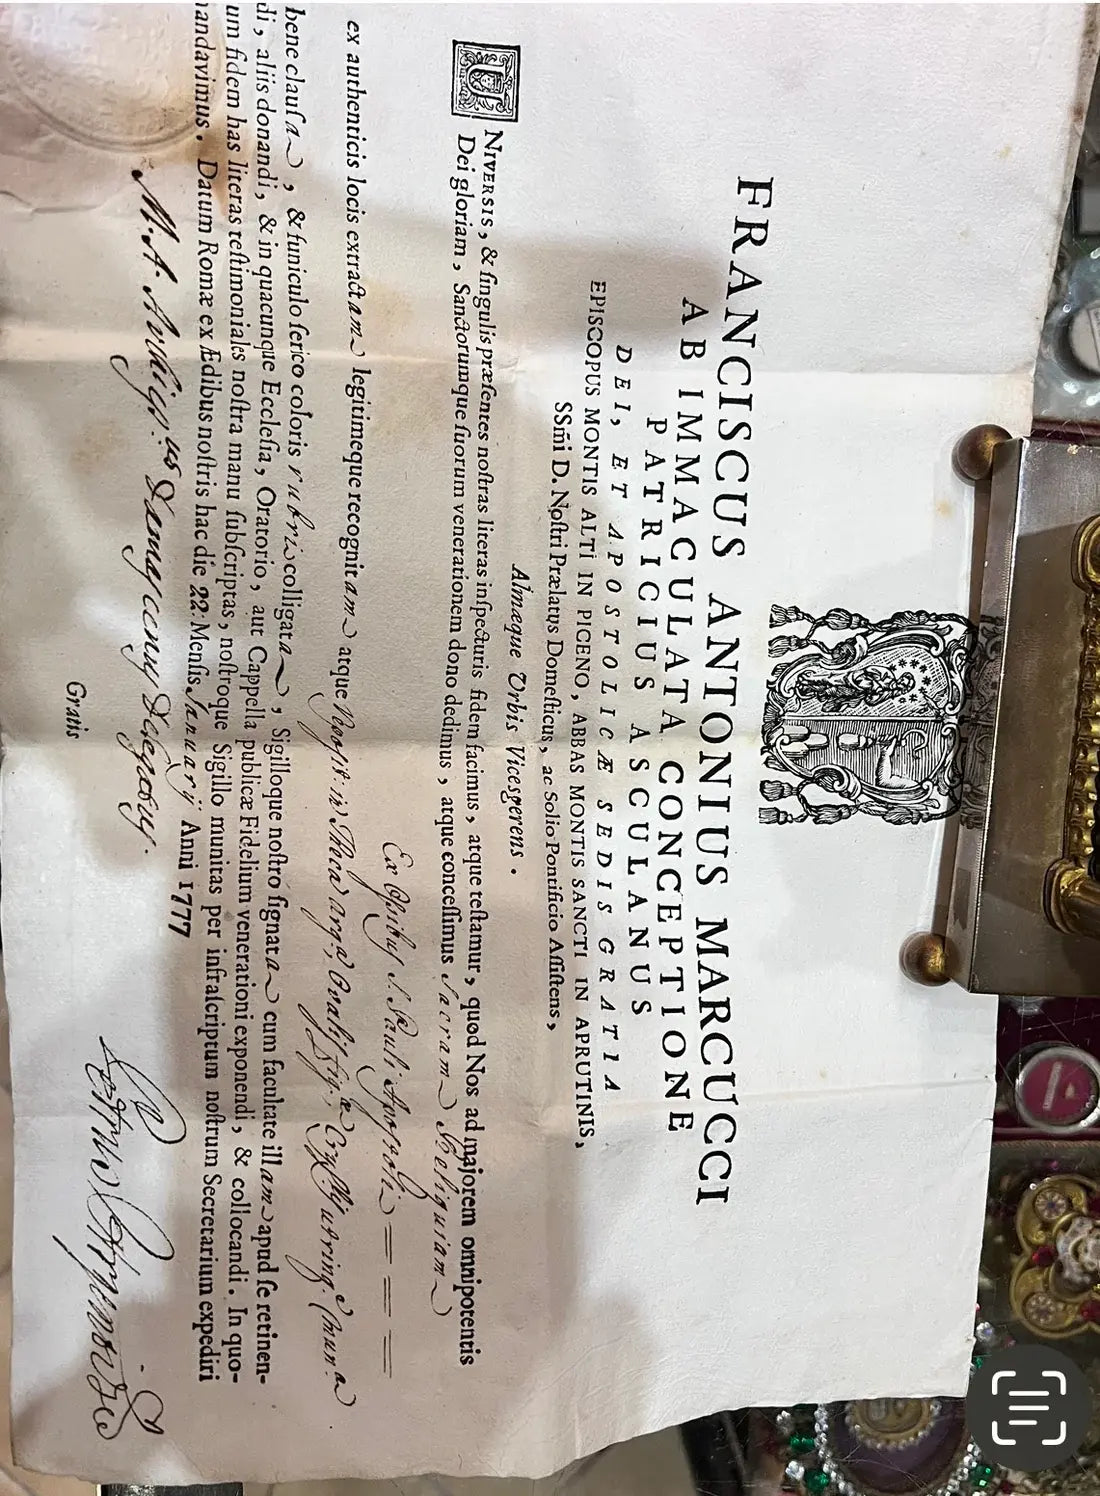 FRANCISCUS ANTONIUS MARCUCCI
AB IMMACULATA CONCEPTIONE
PATRICIUS ASCULANUS
DEI, ET APOSTOLICÆ SEDIS GRATIA
EPISCOPUS MONTIS ALTI IN PICENO, ABBAS MONTIS SANCTI IN APRUTINIS,
SSm̃i D. Noſtri Prælatus Domeſticus, ac Solio Pontificio Aſſiſtens,
Almæque Urbis Viceſgerens.
UNIVERSIS, & ſingulis præſentes noſtras literas inſpecturis fidem facimus, atque teſtamur, quod Nos ad majorem omnipotentis
Dei gloriam, Sanctorumque ſuorum venerationem dono dedimus, atque conceſſimus Sacram Reliquiam
Ex Ossibus S. Pauli Apostoli
ex authenticis locis extractam legitimeque recognitam atque reposit. in Theca arg.a ovalis fig.æ Crystall utrinq.e munita
bene clauſa, & funiculo ſerico coloris rubri colligata, Sigilloque noſtro ſignata cum facultate illam apud ſe retinen-
di, aliis donandi, & in quacunque Eccleſia, Oratorio, aut Cappella publicæ Fidelium venerationi exponendi, & collocandi. In quo-
um fidem has literas teſtimoniales noſtra manu ſubſcriptas, noſtroque Sigillo munitas per infraſcriptum noſtrum Secretarium expediri
andavimus. Datum Romæ ex Ædibus noſtris hac die 22 Menſis Januarij Anni 1777
M. A. Archiep.us Damascenus Delegatus.
Gratis